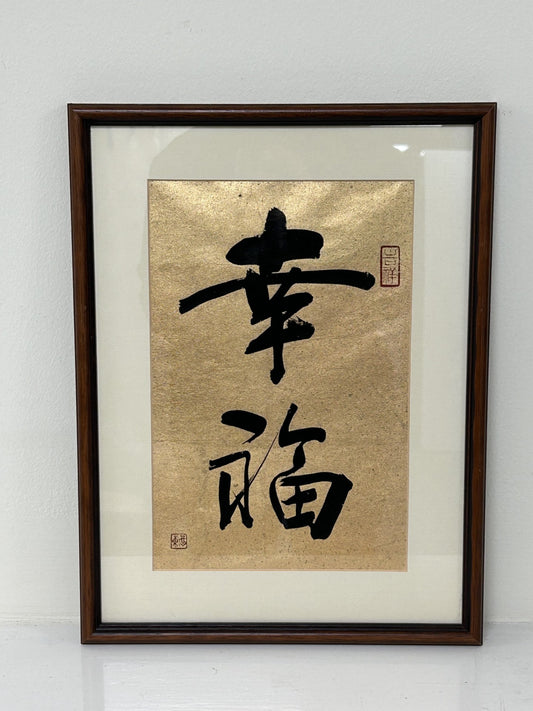 幸
福
吉祥